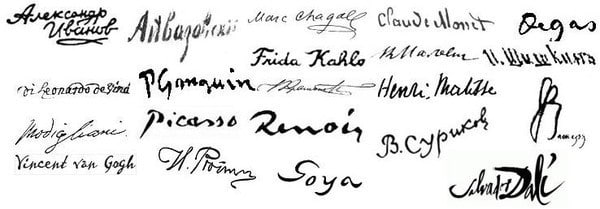 Александр
Иванов
Айвазовскій
Marc Chagall
Claude Monet
Degas
Frida Kahlo
И. Шишкинъ
PGauguin
Henri. Matisse
Modigliani
Picasso
Renoir
В. Суриков
Vincent van Gogh
И. Репин
Goya
Salvador Dalí